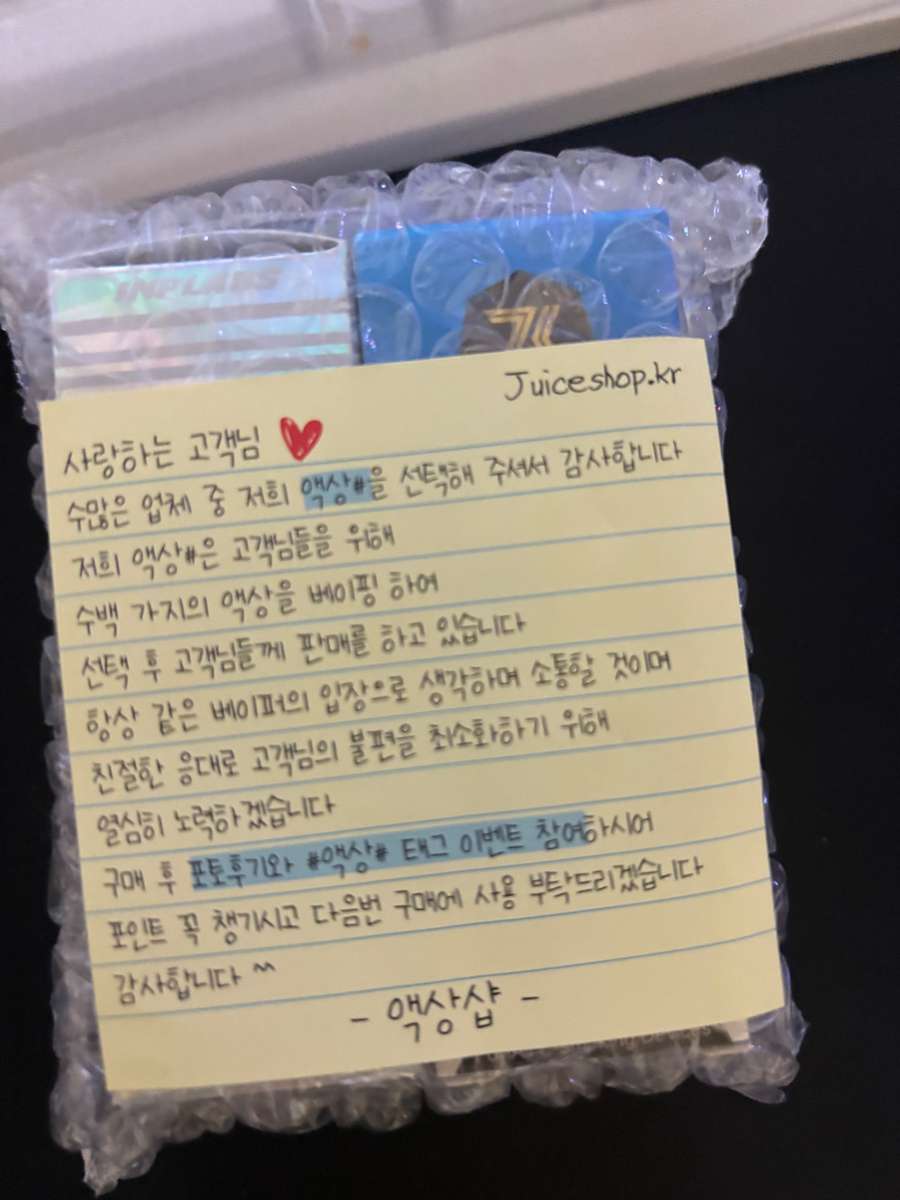 INPLABS
Juiceshop.kr
사랑하는 고객님
수많은 업체 중 저희 액상#을 선택해 주셔서 감사합니다
저희 액상#은 고객님들을 위해
수백 가지의 액상을 베이핑 하여
선택 후 고객님들께 판매를 하고 있습니다
항상 같은 베이퍼의 입장으로 생각하며 소통할 것이며
친절한 응대로 고객님의 불편을 최소화하기 위해
열심히 노력하겠습니다
구매 후 포토후기와 #액상# 태그 이벤트 참여하시어
포인트 꼭 챙기시고 다음번 구매에 사용 부탁드리겠습니다
감사합니다 ^^
- 액상샵 -